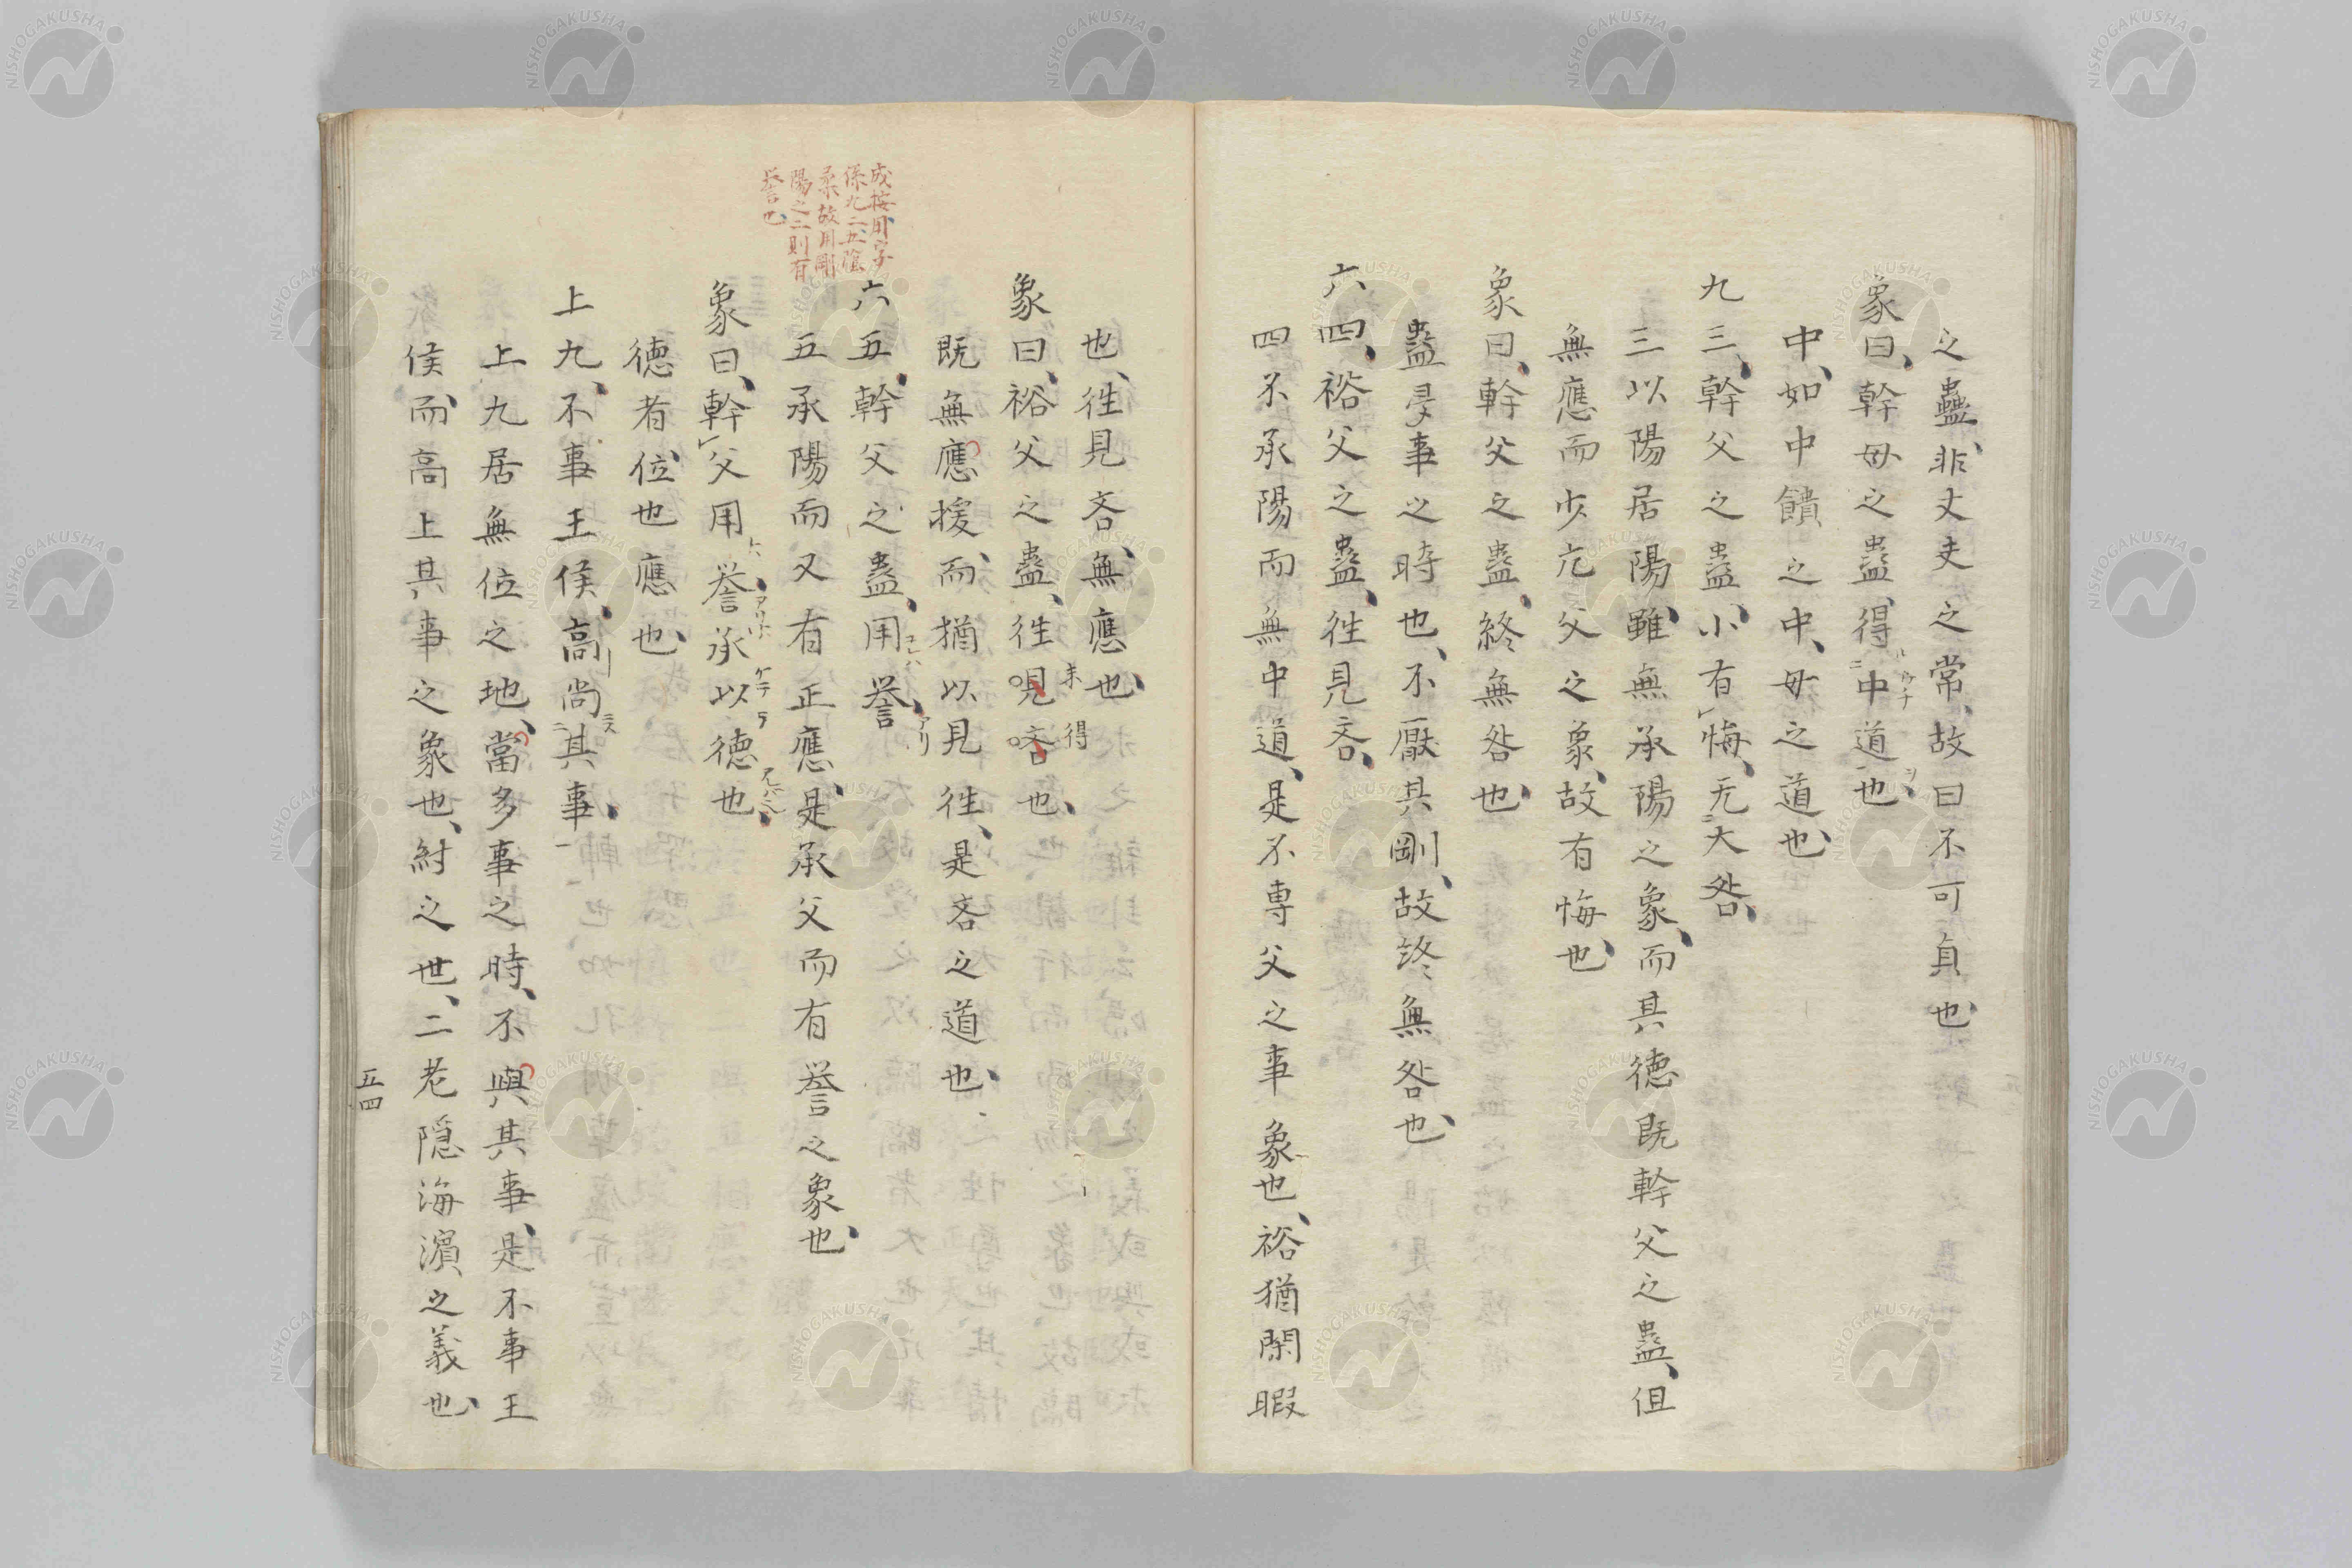 之蠱、非丈夫之常、故曰不可貞也、
象曰、幹母之蠱、得中道也、
中、如中饋之中、母之道也、
九三、幹父之蠱、小有悔、无大咎、
三以陽居陽、雖無承陽之象、而其德既幹父之蠱、但
無應而少亢父之象、故有悔也、
象曰、幹父之蠱、終無咎也、
蠱事之時也、不厭其剛、故終無咎也、
六四、裕父之蠱、徃見吝、
四不承陽而無中道、是不專父之事象也、裕猶閑暇
也、徃見吝、無應也、
象曰、裕父之蠱、徃見吝也、
未
得
既無應援、而猶以見徃、是吝之道也、
六五、幹父之蠱、用譽、
五承陽而又有正應、是承父而有譽之象也、
象曰、幹父用譽、承以德也、
德者位也應也、
上九、不事王侯、高尚其事、
上九居無位之地、當多事之時、不與其事、是不事王
侯、而高上其事之象也、紂之世、二老隠海濱之義也、
成按、用字
係九二五、陰
柔故用剛
陽之二則有
譽也、
五四
NISHOGAKUSHA